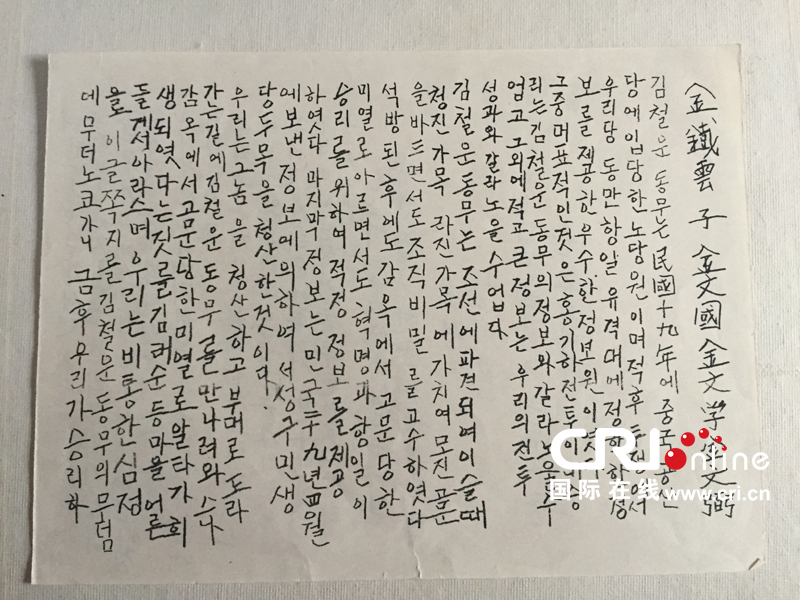 金鐵雲 子 金文國 金文学 金文弼
김철운 동무는 民國十九年에 중국공산
당에 입당한 노당원이며 적후 투쟁에서
우리당 동만 항일 유격대에 정확하
보를 제공한 우수한 정보원이엿
그중 대표적인것은 홍기하전투이며
리는 김철운 동무의 정보와 갈라노을 수
업고 그외에 적고 큰 정보는 우리의 전투
성과와 갈라노을 수 업다
김철운 동무는 조선에 파견되여 이슬때
청진가목 라진가목에 가치여 모진 고문
을 바드면서도 조직비밀를 고수하엿다
석방된 후에도 감옥에서 고문당한
미열로 아르면서도 혁명과 항일이
승리를 위하여 적정 정보를 제공
하엿다 마지막 정보는 민국二十九년 四월
에 보낸 정보에 의하여 서성구 민생
당두목을 청산한것이다.
우리는 그놈을 청산하고 부대로 도라
가는길에 김철운 동무를 만나려와
감옥에서 고문당한 미열로 알타가 희
생되엿다는 것를 김태순 등 마을 어른
들게서 아라스며 우리는 비통한 심정
을 이글쪽지를 김철운 동무의 무덤
데 무더노코가니 금후 우리가 승리하
CRI online
国际在线 www.cri.cn